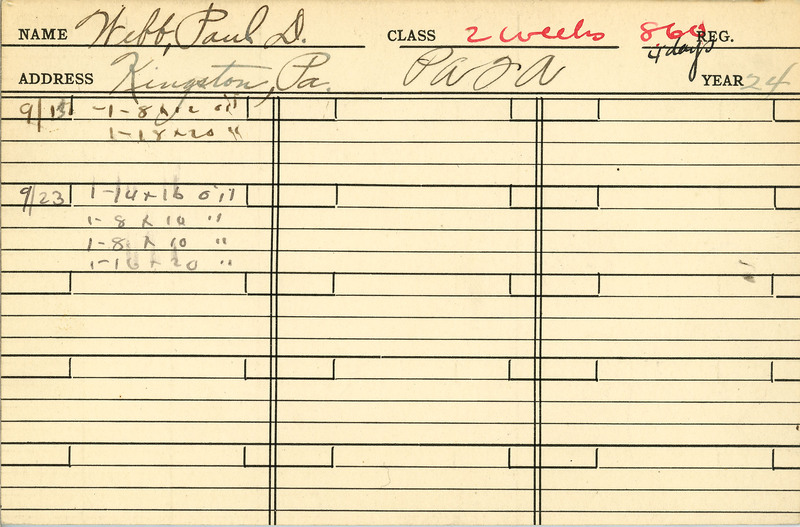 NAME Webb, Paul D. CLASS 2 weeks 860 REG.
4 days
ADDRESS Kingston, Pa. PA & A YEAR 24
9/15 -1-8 x 12 oil
1-18 x 20 "
9/23 1-14 x 16 oil
1-8 x 10 "
1-8 x 10 "
1-16 x 20 "